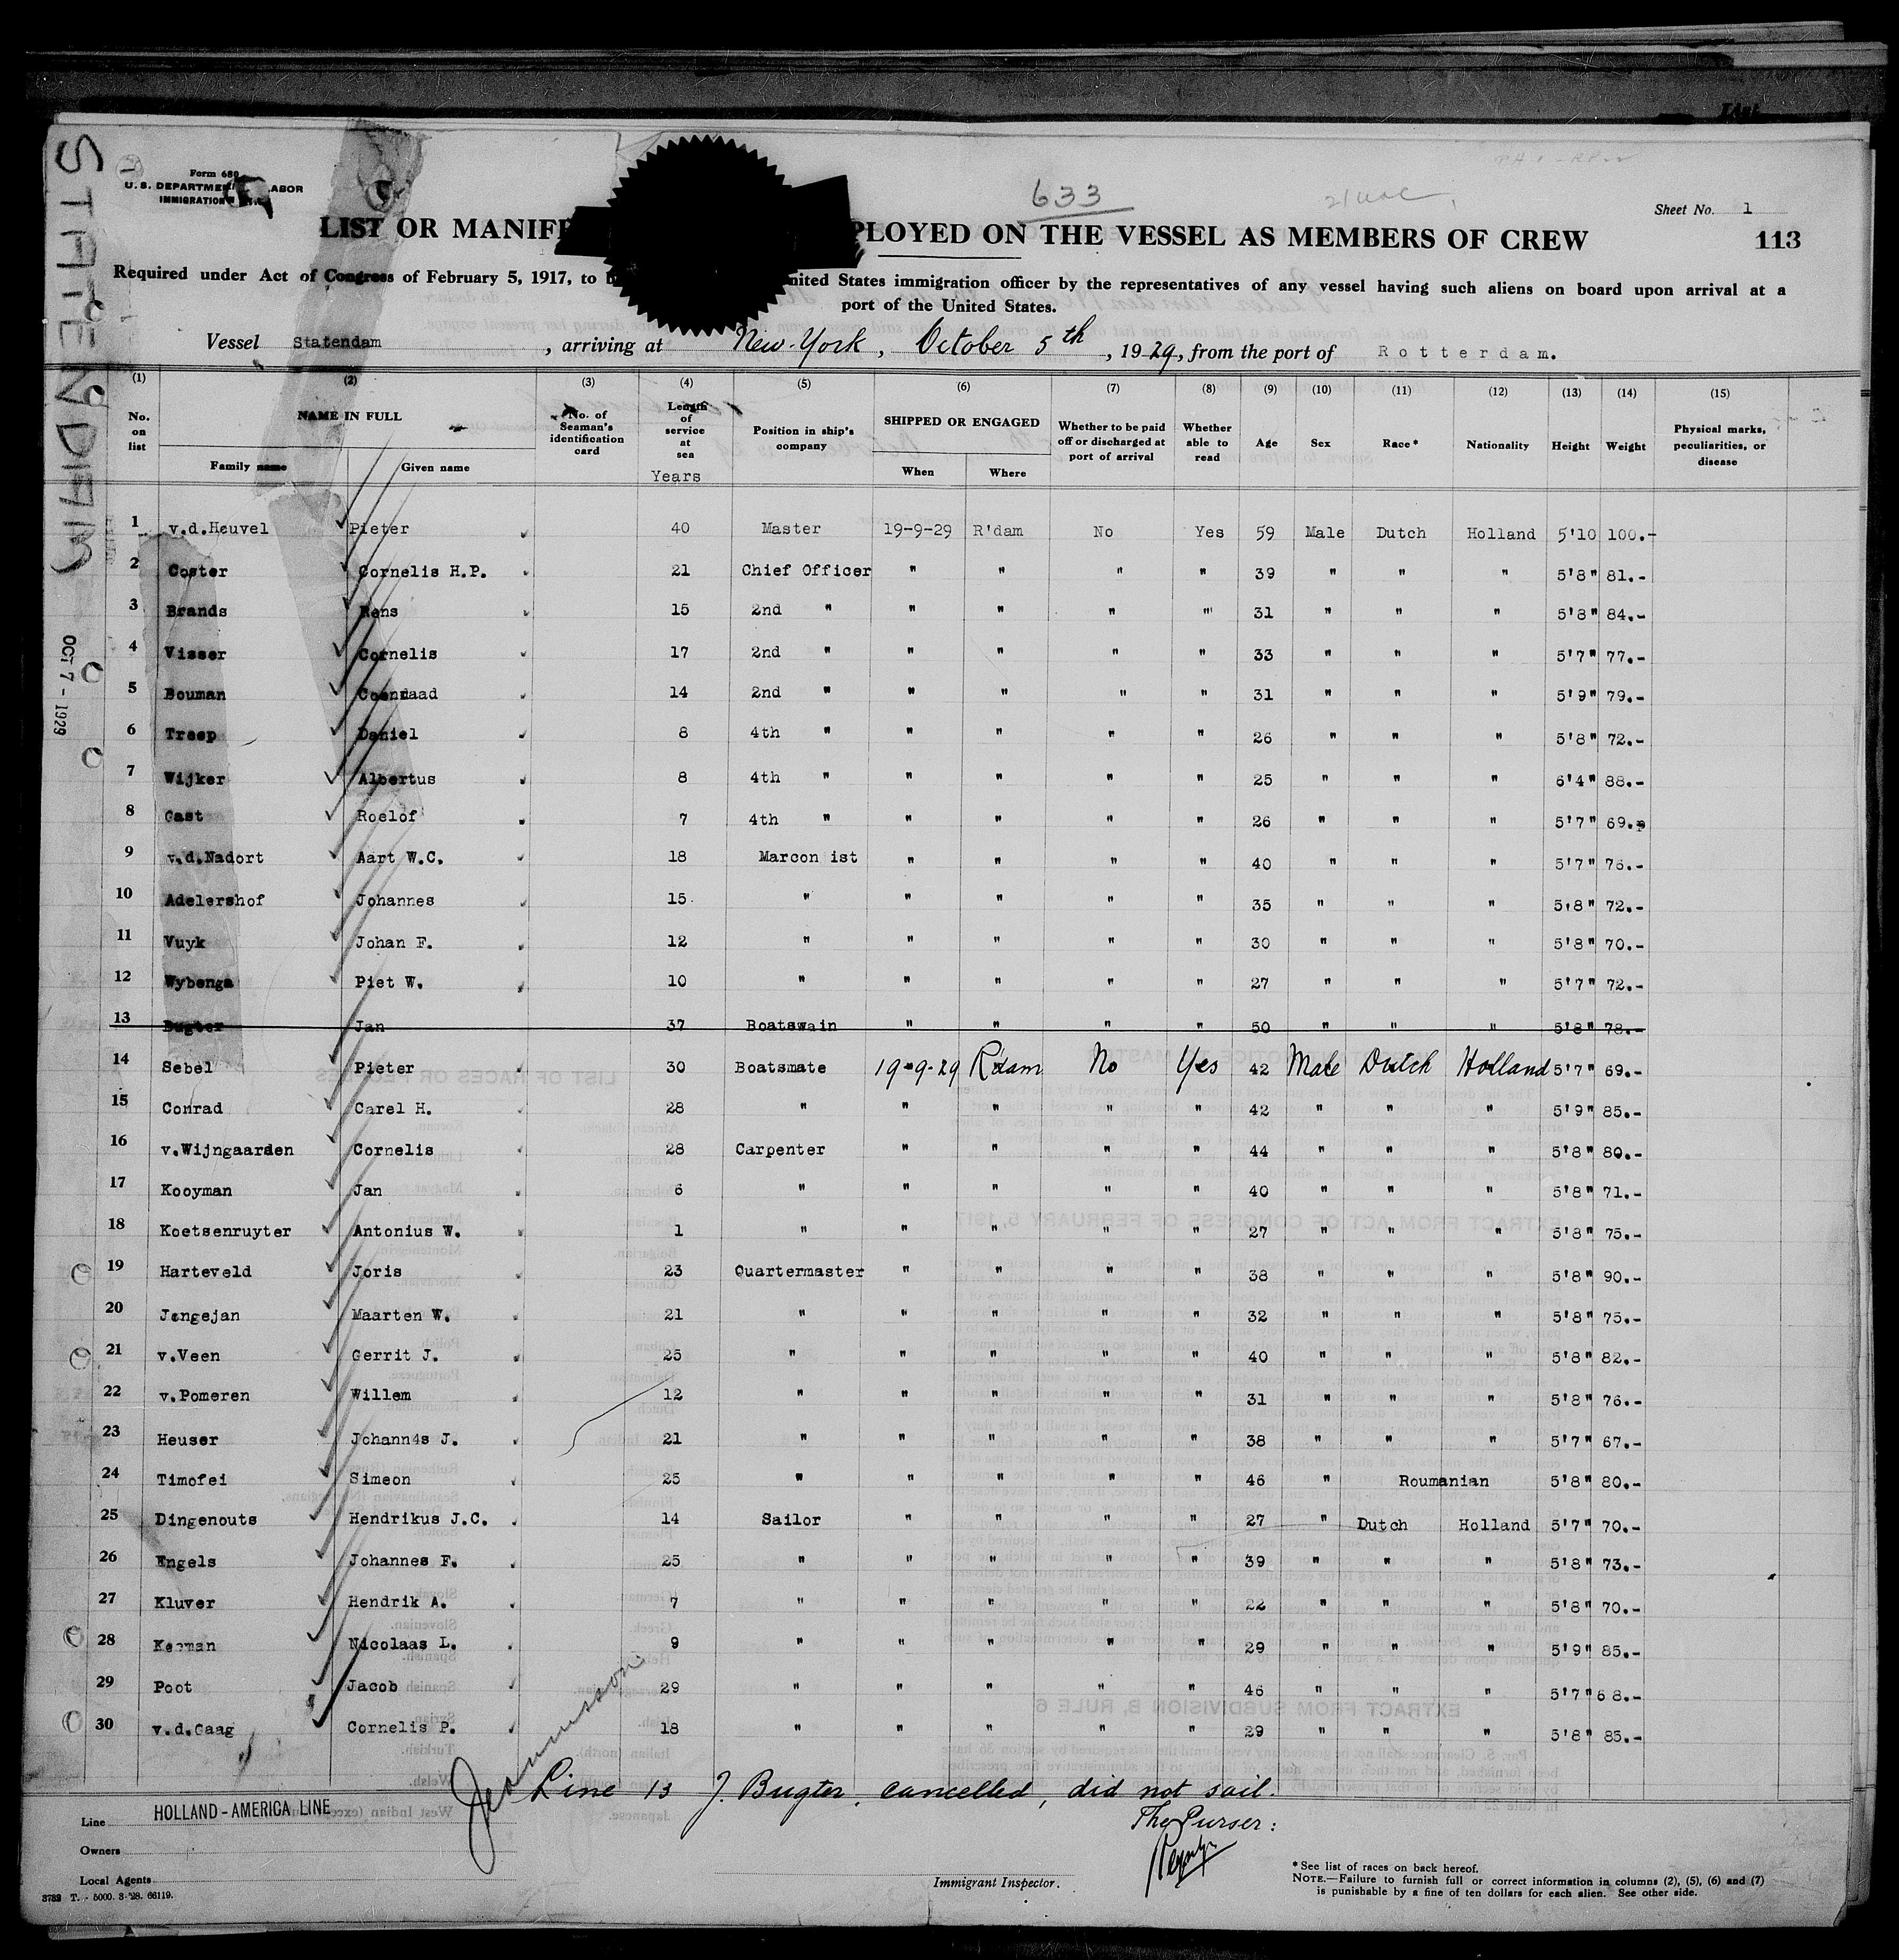 STATENDAM
OCT 7 - 1929
Form 680
U. S. DEPARTMENT LABOR
IMMIGRATION
633
Sheet No. 1
LIST OR MANIFE PLOYED ON THE VESSEL AS MEMBERS OF CREW
113
Required under Act of Congress of February 5, 1917, to b nited States immigration officer by the representatives of any vessel having such aliens on board upon arrival at a
port of the United States.
Vessel Statendam, arriving at New-York, October 5th, 1929, from the port of Rotterdam.
(1) (2) (3) (4) (5) (6) (7) (8) (9) (10) (11) (12) (13) (14) (15)
No. on list NAME IN FULL Family name Given name No. of Seaman's identification card Length of service at sea Years Position in ship's company SHIPPED OR ENGAGED When Where Whether to be paid off or discharged at port of arrival Whether able to read Age Sex Race* Nationality Height Weight Physical marks, peculiarities, or disease
1 v.d.Heuvel Pieter 40 Master 19-9-29 R'dam No Yes 59 Male Dutch Holland 5'10 100.-
2 Coster Cornelis H.P. 21 Chief Officer " " " " 39 " " " 5'8" 81.-
3 Brands Rens 15 2nd " " " " " 31 " " " 5'8" 84.-
4 Visser Cornelis 17 2nd " " " " " 33 " " " 5'7" 77.-
5 Bouman Coenraad 14 2nd " " " " " 31 " " " 5'9" 79.-
6 Treep Daniel 8 4th " " " " " 26 " " " 5'8" 72.-
7 Wijker Albertus 8 4th " " " " " 25 " " " 6'4" 88.-
8 Gast Roelof 7 4th " " " " " 26 " " " 5'7" 69.-
9 v.d.Nadort Aart W.C. 18 Marcon ist " " " " 40 " " " 5'7" 76.-
10 Adelershof Johannes 15 " " " " " 35 " " " 5'8" 72.-
11 Vuyk Johan F. 12 " " " " " 30 " " " 5'8" 70.-
12 Wybenga Piet W. 10 " " " " " 27 " " " 5'7" 72.-
13 Bugter Jan 37 Boatswain " " " " 50 " " " 5'8" 78.-
14 Sebel Pieter 30 Boatsmate 19-9-29 R'dam No Yes 42 Male Dutch Holland 5'7" 69.-
15 Conrad Carel H. 28 " " " " " 42 " " " 5'9" 85.-
16 v.Wijngaarden Cornelis 28 Carpenter " " " " 44 " " " 5'8" 80.-
17 Kooyman Jan 6 " " " " " 40 " " " 5'8" 71.-
18 Koetsenruyter Antonius W. 1 " " " " " 27 " " " 5'8" 75.-
19 Harteveld Joris 23 Quartermaster " " " " 38 " " " 5'8" 90.-
20 Jongejan Maarten W. 21 " " " " " 32 " " " 5'8" 75.-
21 v.Veen Gerrit J. 25 " " " " " 40 " " " 5'8" 82.-
22 v.Pomeren Willem 12 " " " " " 31 " " " 5'8" 76.-
23 Heuser Johann4s J. 21 " " " " " 38 " " " 5'7" 67.-
24 Timofei Simeon 25 " " " " " 46 " Roumanian 5'8" 80.-
25 Dingenouts Hendrikus J.C. 14 Sailor " " " " 27 " Dutch Holland 5'7" 70.-
26 Engels Johannes F. 25 " " " " " 39 " " " 5'8" 73.-
27 Kluver Hendrik A. 7 " " " " " 22 " " " 5'8" 70.-
28 Keeman Nicolaas L. 9 " " " " " 29 " " " 5'9" 85.-
29 Poot Jacob 29 " " " " " 46 " " " 5'7" 68.-
30 v.d.Gaag Cornelis P. 18 " " " " " 29 " " " 5'8" 85.-
Line 13 J. Bugter, cancelled, did not sail.
The Purser:
Line HOLLAND-AMERICA LINE
Owners
Local Agents
3782 T. - 5000. 3-'28. 66119.
Immigrant Inspector.
*See list of races on back hereof.
NOTE.—Failure to furnish full or correct information in columns (2), (5), (6) and (7)
is punishable by a fine of ten dollars for each alien. See other side.